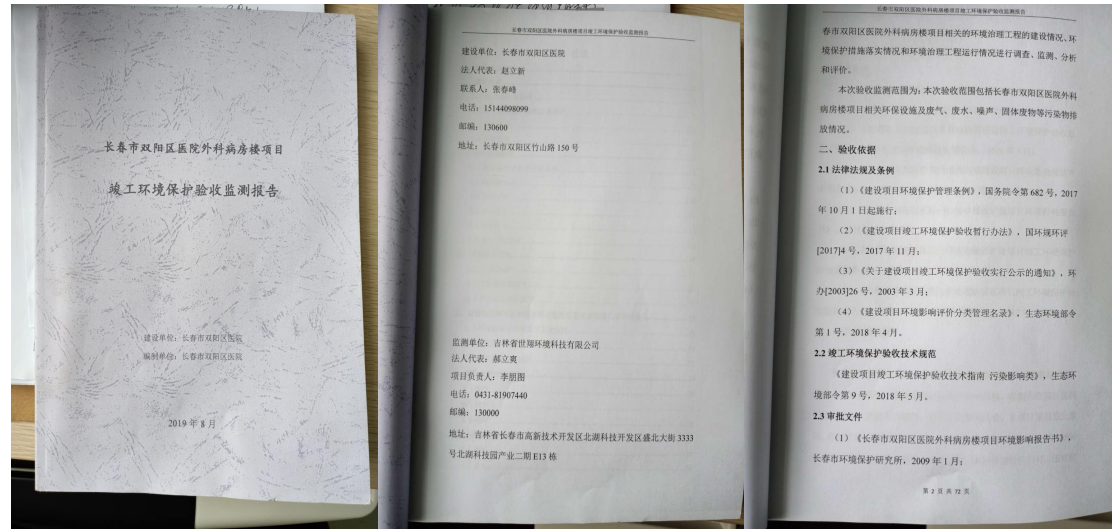 长春市双阳区医院外科病房楼项目
竣工环境保护验收监测报告
建设单位：长春市双阳区医院
编制单位：长春市双阳区医院
2019 年 8 月
长春市双阳区医院外科病房楼项目竣工环境保护验收监测报告
建设单位：长春市双阳区医院
法人代表：赵立新
联系人：张春峰
电话：15144098099
邮编：130600
地址：长春市双阳区竹山路 150 号
监测单位：吉林省世翔环境科技有限公司
法人代表：郝立爽
项目负责人：李朋图
电话：0431-81907440
邮编：130000
地址：吉林省长春市高新技术开发区北湖科技开发区盛北大街 3333
号北湖科技园产业二期 E13 栋
长春市双阳区医院外科病房楼项目竣工环境保护验收监测报告
春市双阳区医院外科病房楼项目相关的环境治理工程的建设情况、环
境保护措施落实情况和环境治理工程运行情况进行调查、监测、分析
和评价。
本次验收监测范围为：本次验收范围包括长春市双阳区医院外科
病房楼项目相关环保设施及废气、废水、噪声、固体废物等污染物排
放情况。
二、验收依据
2.1 法律法规及条例
（1）《建设项目环境保护管理条例》，国务院令第 682 号，2017
年 10 月 1 日起施行；
（2）《建设项目竣工环境保护验收暂行办法》，国环规环评
[2017]4 号，2017 年 11 月；
（3）《关于建设项目竣工环境保护验收实行公示的通知》，环
办[2003]26 号，2003 年 3 月；
（4）《建设项目环境影响评价分类管理名录》，生态环境部令
第 1 号，2018 年 4 月。
2.2 竣工环境保护验收技术规范
《建设项目竣工环境保护验收技术指南 污染影响类》，生态环
境部令第 9 号，2018 年 5 月。
2.3 审批文件
（1）《长春市双阳区医院外科病房楼项目环境影响报告书》，
长春市环境保护研究所，2009 年 1 月；
第 2 页 共 72 页